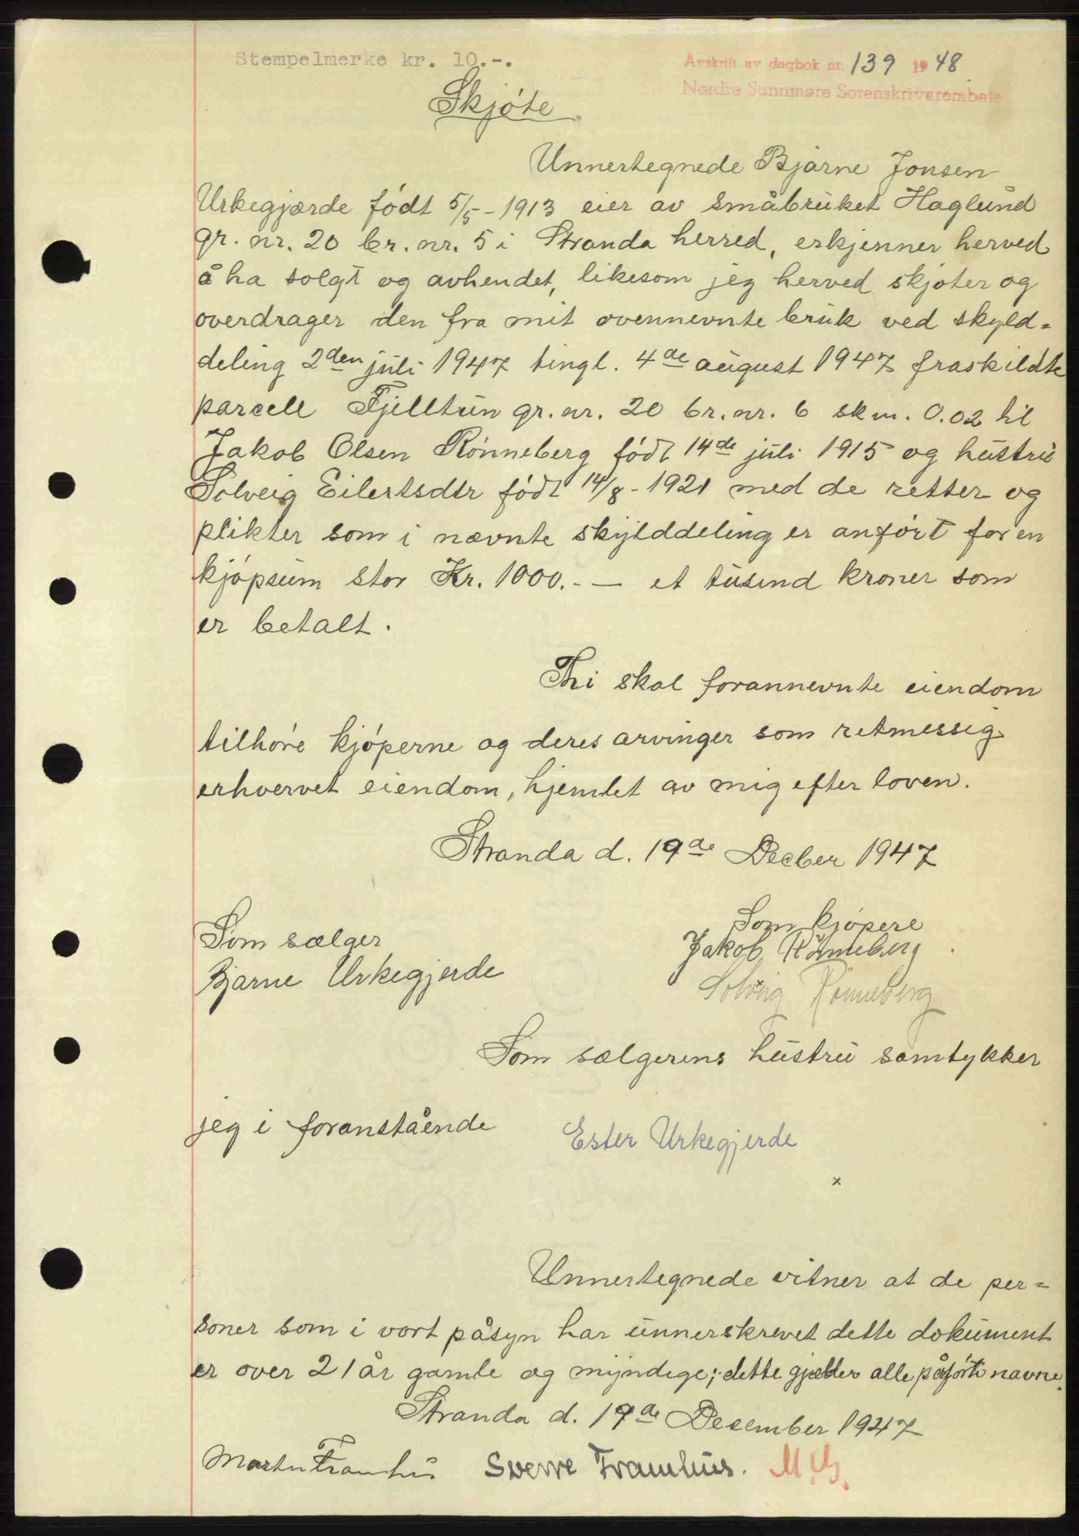 Stempelmerke kr. 10.-.
Avskrift av dagbok nr. 139 1948
Nordre Sunnmøre Sorenskrivarembete
Skjøte
Unnertegnede Bjarne Jonsen
Urkegjærde født 5/5-1913 eier av småbruket Haglund
gr. nr. 20 br. nr. 5 i Stranda herred, erkjenner herved
å ha solgt og avhendet, likesom jeg herved skjøter og
overdrager den fra mit ovennevnte bruk ved skyld=
deling 2den juli 1947 tingl. 4de august 1947 fraskildte
parcell Fjelltun gr. nr. 20 br. nr. 6 skm. 0.02 til
Jakob Olsen Rønneberg født 14de juli 1915 og hustru
Solveig Eilertsdtr født 14/8-1921 med de retter og
plikter som i nævnte skylddeling er anført for en
kjøpsum stor Kr. 1000.- — et tusend kroner som
er betalt.
Thi skal forannevnte eiendom
tilhøre kjøperne og deres arvinger som retmessig
erhvervet eiendom, hjemlet av mig efter loven.
Stranda d. 19de Decber 1947
Som sælger
Bjarne Urkegjerde
Som kjøpere
Jakob Rønneberg
Solveig Rønneberg
Som sælgerens hustru samtykker
jeg i foranstående
Ester Urkegjerde
x
Unnertegnede vitner at de per=
soner som i vort påsyn har unnerskrevet dette dokument
er over 21 år gamle og myndige; dette gjelder alle påførte navne.
Stranda d. 19de Desember 1947
Martin Framhus Sverre Framhus. M.G.